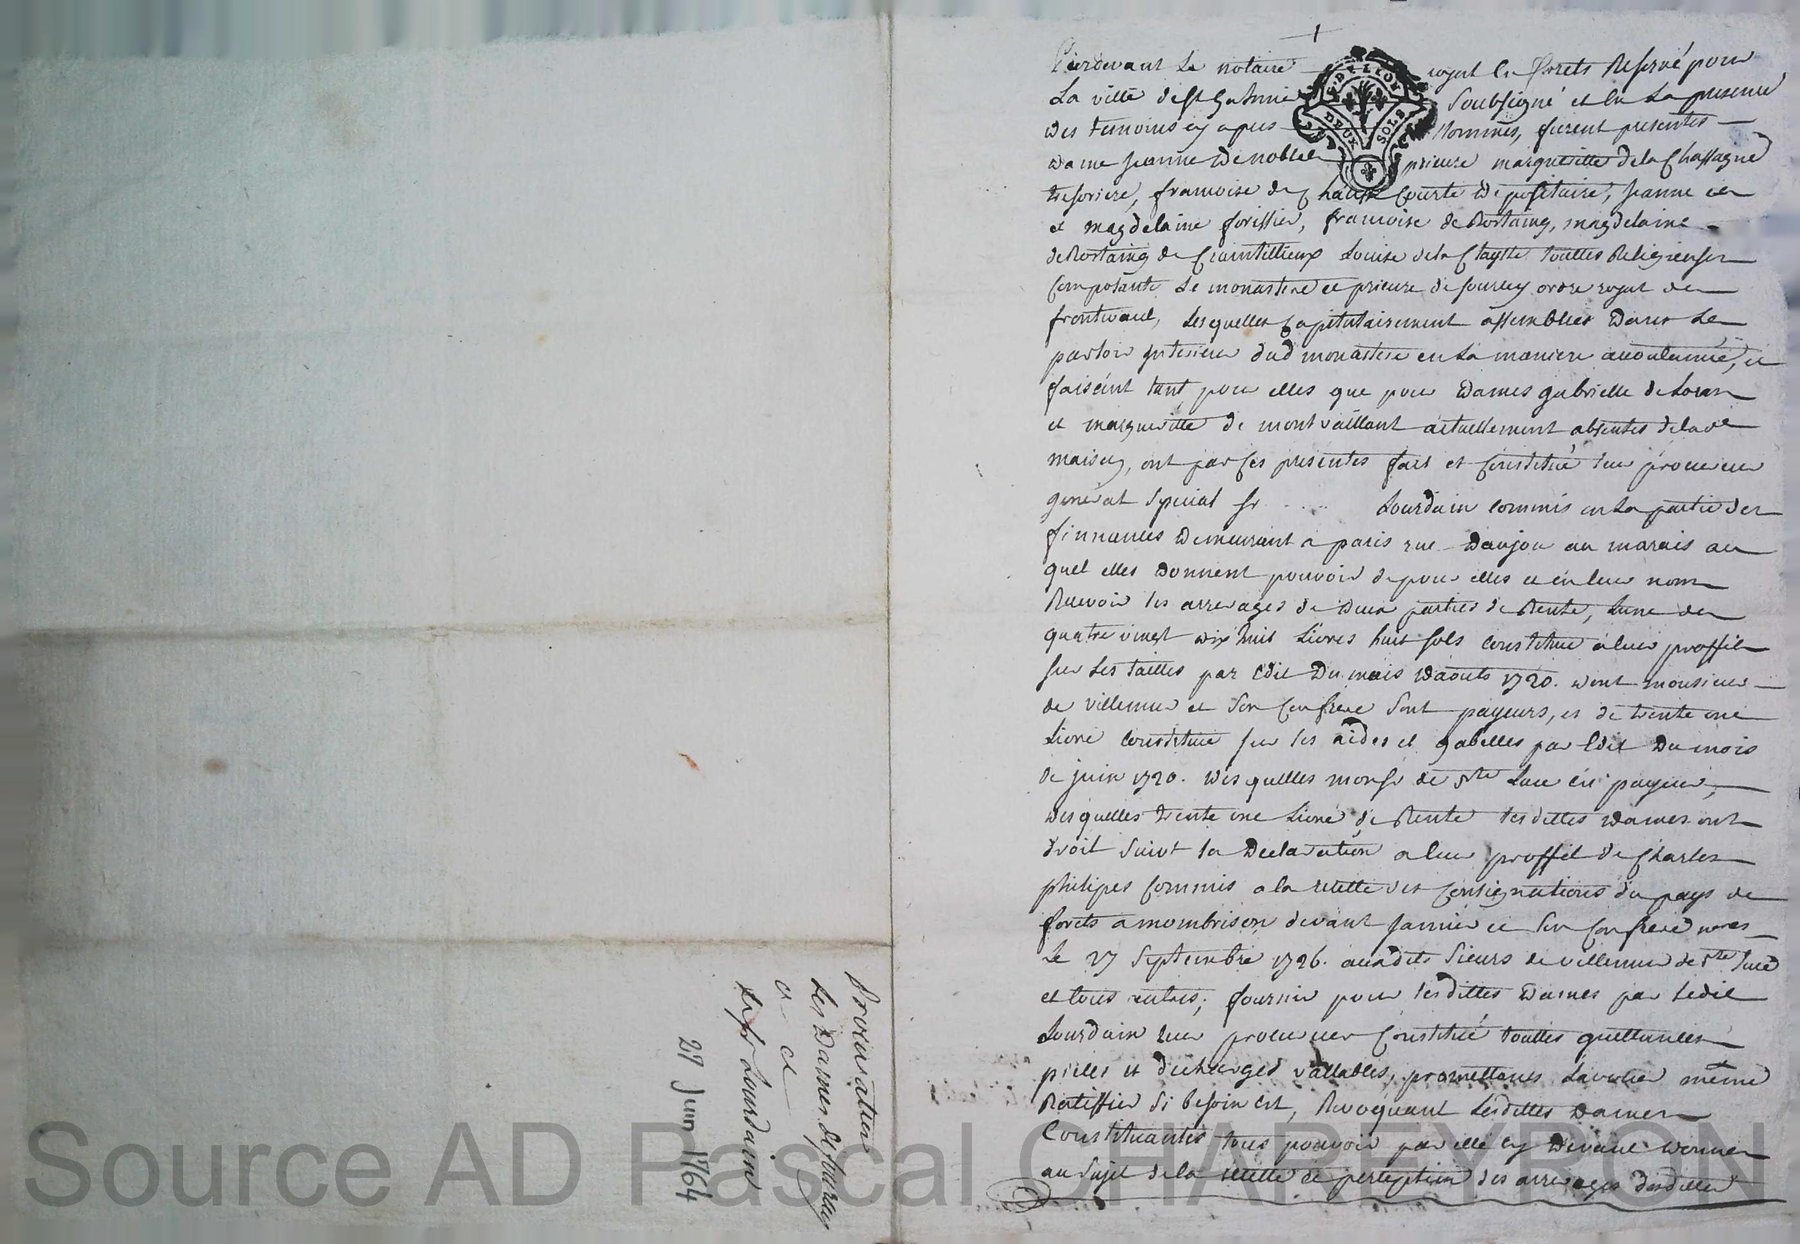 Pardevant Le notaire royal en Forets Reservé pour
La ville de St Galmier Soubsigné et en La presence
Des temoins cy apres Nommés, furent presentes
Dame Jeanne De noblet prieure margueritte de la Chassagne
tresoriere, francoise de Chantelle Courte Depositaire, Jeanne
et magdelaine forissier, francoise de Rostaing, magdelaine
de Rostaing de Craintillieux Louise de la toutes Religieuses
Composants Le monastere et prieuré de jourcey ordre royal de
frontevaul, Lesquelles Capitulairement assemblées Dans Le
parloir interieur dud monastere en La maniere accoutumée, et
faisant tant pour elles que pour Dames gabrielle de
et margueritte de montvaillant actuellement absentes de lad
maison, ont par Ces presentes fait et Constitué leur procureur
general special Sr .... Lourdain commis en La partie des
finnances Demeurant a paris rue Danjou au marais au
quel elles Donnent pouvoir de pour elles et en leur nom
Recevoir les arrerages de Deux parties de Rente, Lune de
quatre vingt dix huit Livres huit sols constitué a leur proffit
sur Les tailles par Edit Du mois Daouts 1720. Dont monsieur
de villemur et Son Confrere Sont payeurs, et de trente une
Livre constitué sur les aides et gabelles par Edit Du mois
de juin 1720. Des quelles monsr de Ste Luce est payeur,
Des quelles trente une Livre de Rente lesdittes Dames ont
droit suivt la Declaration a leur proffit de Charles
philipes Commis a la recette des Consignations du pays de
forets a mombrison devant Jannier et Son Confrere nores
Le 27 Septembre 1726. auxdits Sieurs de villemur de Ste Luce
et tous autres, fournir pour lesdittes Dames par ledit
Lourdain leur procureur Constitué touttes quittances
pieces et décharges vallables, promettants Lavouer même
Ratiffier Si besoin est, Revoquant Lesdittes Dames
Constituantes tous pouvoir par elle cy Devant Donner
au Sujet de la recette et perception des arrerages desdittes
Procuration
Les Dames de jourcey
a
Le Sr Lourdain
27 Juin 1764
DEUX SOLS
Source AD Pascal CHAREYRON